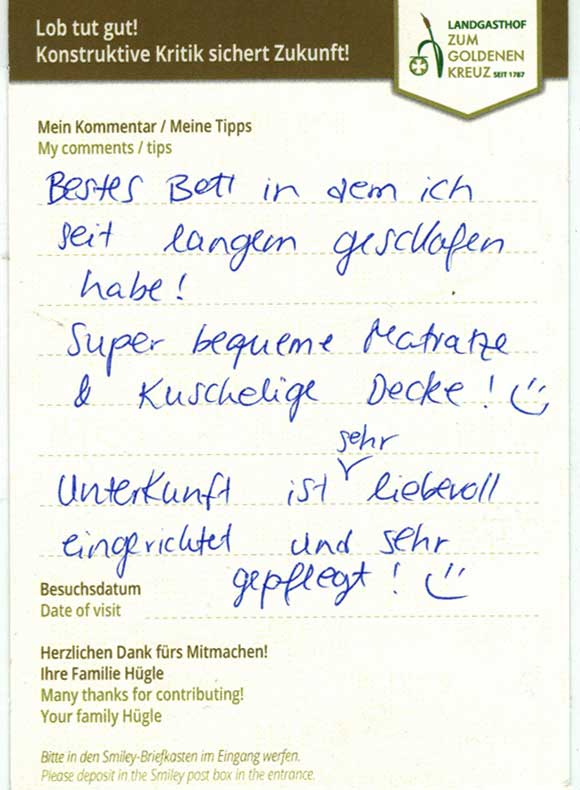 Lob tut gut!
Konstruktive Kritik sichert Zukunft!
LANDGASTHOF
ZUM
GOLDENEN
KREUZ SEIT 1787
Mein Kommentar / Meine Tipps
My comments / tips
Bestes Bett in dem ich
seit langem geschlafen
habe!
Super bequeme Matratze
& Kuschelige Decke!
sehr
Unterkunft ist liebevoll
eingerichtet und sehr
gepflegt!
Besuchsdatum
Date of visit
Herzlichen Dank fürs Mitmachen!
Ihre Familie Hügle
Many thanks for contributing!
Your family Hügle
Bitte in den Smiley-Briefkasten im Eingang werfen.
Please deposit in the Smiley post box in the entrance.